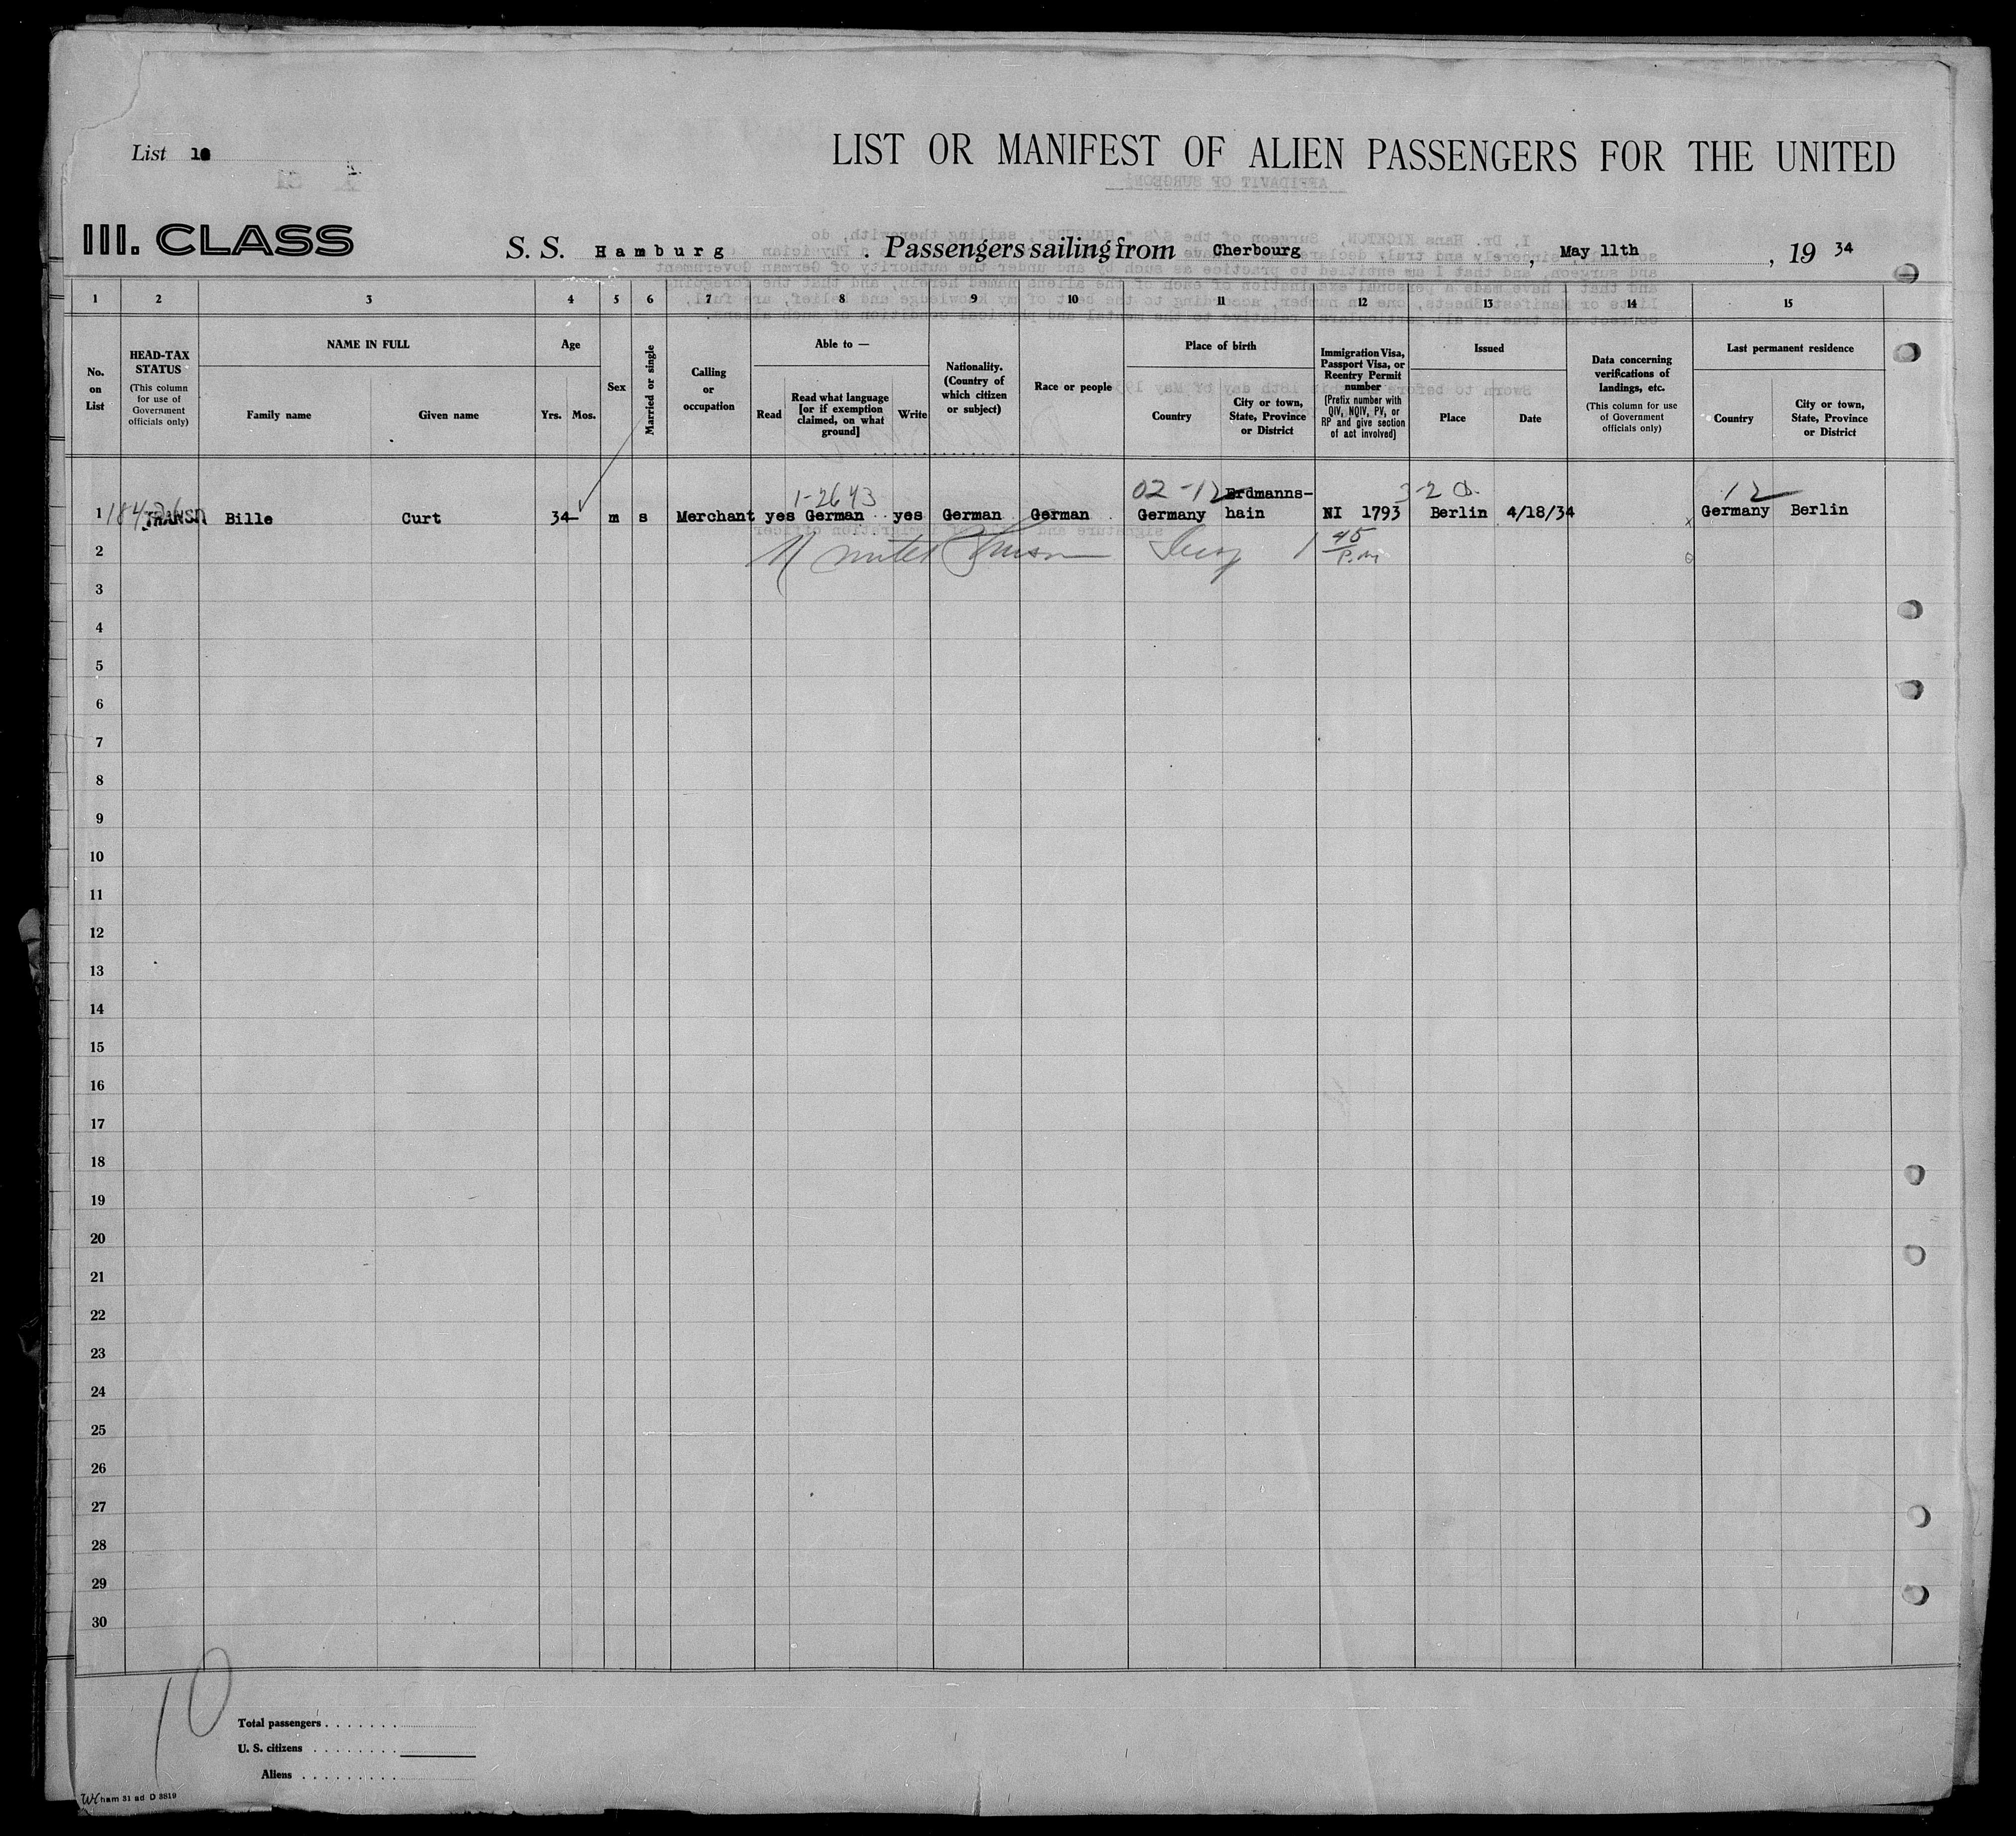 List 10
LIST OR MANIFEST OF ALIEN PASSENGERS FOR THE UNITED
AFFIDAVIT OF SURGEON
III. CLASS
S. S. Hamburg . Passengers sailing from Cherbourg , May 11th , 19 34
1 2 3 4 5 6 7 8 9 10 11 12 13 14 15
No. on List
HEAD-TAX STATUS
(This column for use of Government officials only)
NAME IN FULL
Family name Given name
Age
Yrs. Mos.
Sex
Married or single
Calling or occupation
Able to —
Read
Read what language [or if exemption claimed, on what ground]
Write
Nationality. (Country of which citizen or subject)
Race or people
Place of birth
Country
City or town, State, Province or District
Immigration Visa, Passport Visa, or Reentry Permit number
[Prefix number with QIV, NQIV, PV, or RP and give section of act involved]
Issued
Place Date
Data concerning verifications of landings, etc.
(This column for use of Government officials only)
Last permanent residence
Country
City or town, State, Province or District
1-2643 02-12 Erdmanns- 12
1 TRANSIT Bille Curt 34 m s Merchant yes German yes German German Germany hain NI 1793 Berlin 4/18/34 Germany Berlin
1 45 P.M
2
3
4
5
6
7
8
9
10
11
12
13
14
15
16
17
18
19
20
21
22
23
24
25
26
27
28
29
30
10
Total passengers
U. S. citizens
Aliens
ham 31 ad D 3819